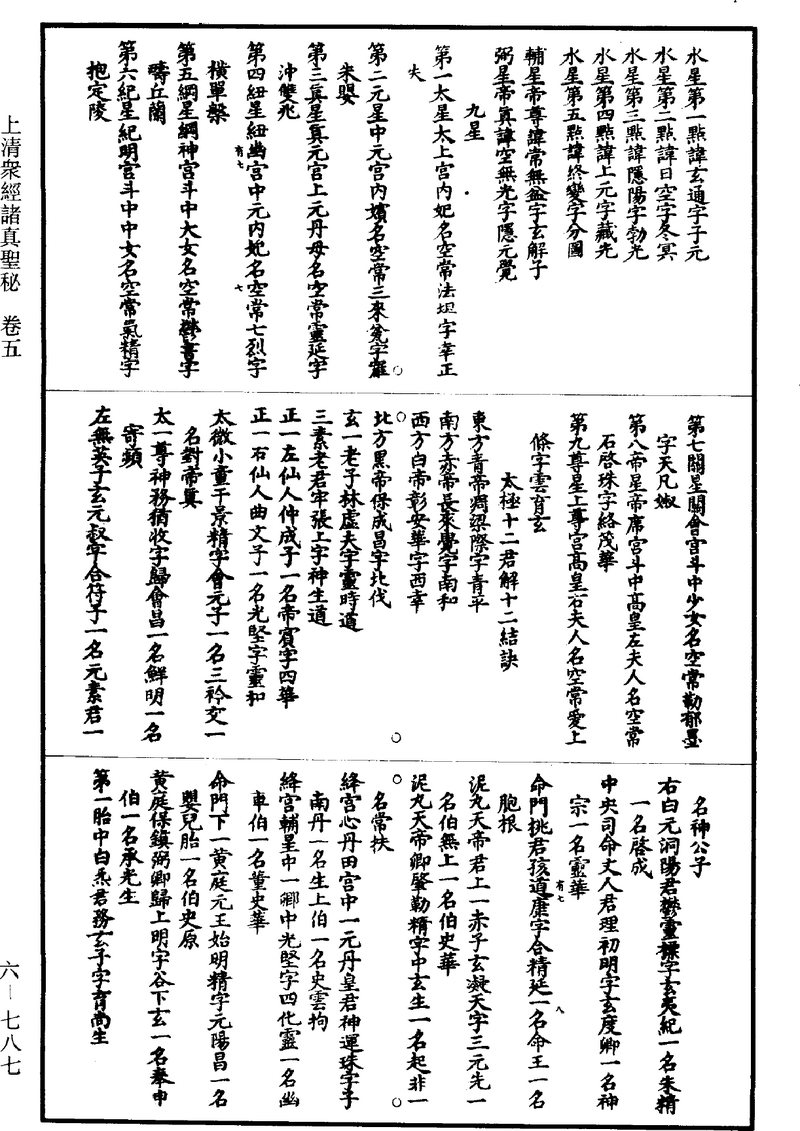 水星第一點諱玄通字子元
水星第二點諱日空字冬冥
水星第三點諱隱陽字勃光
水星第四點諱上元字藏光
水星第五點諱終變字分圖
輔星帝尊諱常無盆字玄解子
弼星帝真諱空無光字隱元覺
九星
第一太星太上宮内妃名空常法坦字幸正
失
第二元星中元宮内嬪名空常三來瓮字龗
朱嬰
第三真星真元宮上元丹母名空常靈延字
沖雙兆
第四紐星紐幽有七宮中元内妃名空七常七烈字
橫單槃
第五綱星綱神宮斗中大女名空常字
疇丘蘭
第六紀星紀明宮斗中中女名空常氣精字
抱定陵
第七關星關會宮斗中少女名空常勒郁墨
字天凡婌
第八帝星帝席宮斗中高皇左夫人名空常
石啓珠字絡茂華
第九尊星上尊宮高皇右夫人名空常愛上
條字雲育玄
太極十二君解十二結訣
東方青帝凋梁際字青平
南方赤帝長來覺字南和
西方白帝彰安華字西華
北方黑帝保成昌字北伐
玄一老子林虛夫字靈時道
三素老君牢張上字神生道
正一左仙人仲成子一名帝賓字四華
正一右仙人曲文子一名光堅字靈和
太微小童干景精字會元子一名三衿交一
名對帝真
太一尊神務猶收字歸會昌一名鮮明一名
寄頻
左無英子玄元叔字合符子一名元素君一
名神公子
右白元洞陽君鬱靈標字玄夷紀一名朱精
一名啓成
中央司命丈人君理初明字玄度卿一名神
宗一名靈華
命門桃君孩道有七康字合精延八一名命王一名
胞根
泥丸天帝君上一赤子玄凝天字三元先一
名伯無上一名伯史華
泥丸天帝卿肇勒精字中玄生一名起非一
名常扶
絳宮心丹田宮中一元丹皇君神運珠字子
南丹一名生上伯一名史雲拘
絳宮輔皇中一卿中光堅字四化靈一名幽
車伯一名董史華
命門下一黃庭元王始明精字元陽昌一名
嬰兒胎一名伯史原
黃庭保鎮弼卿歸上明字谷下玄一名奉申
伯一名承光生
第一胎中白炁君務玄子字育尚生
上清眾經諸真聖秘 卷五
六—七八七